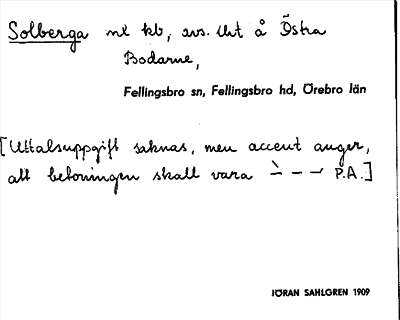 Solberga nl kb, avs. Uht å Östra
Bodarne,
Fellingsbro sn, Fellingsbro hd, Örebro län
[Uttalsuppgift saknas, men accent anger,
att betoningen skall vara P.A.]
JÖRAN SAHLGREN 1909